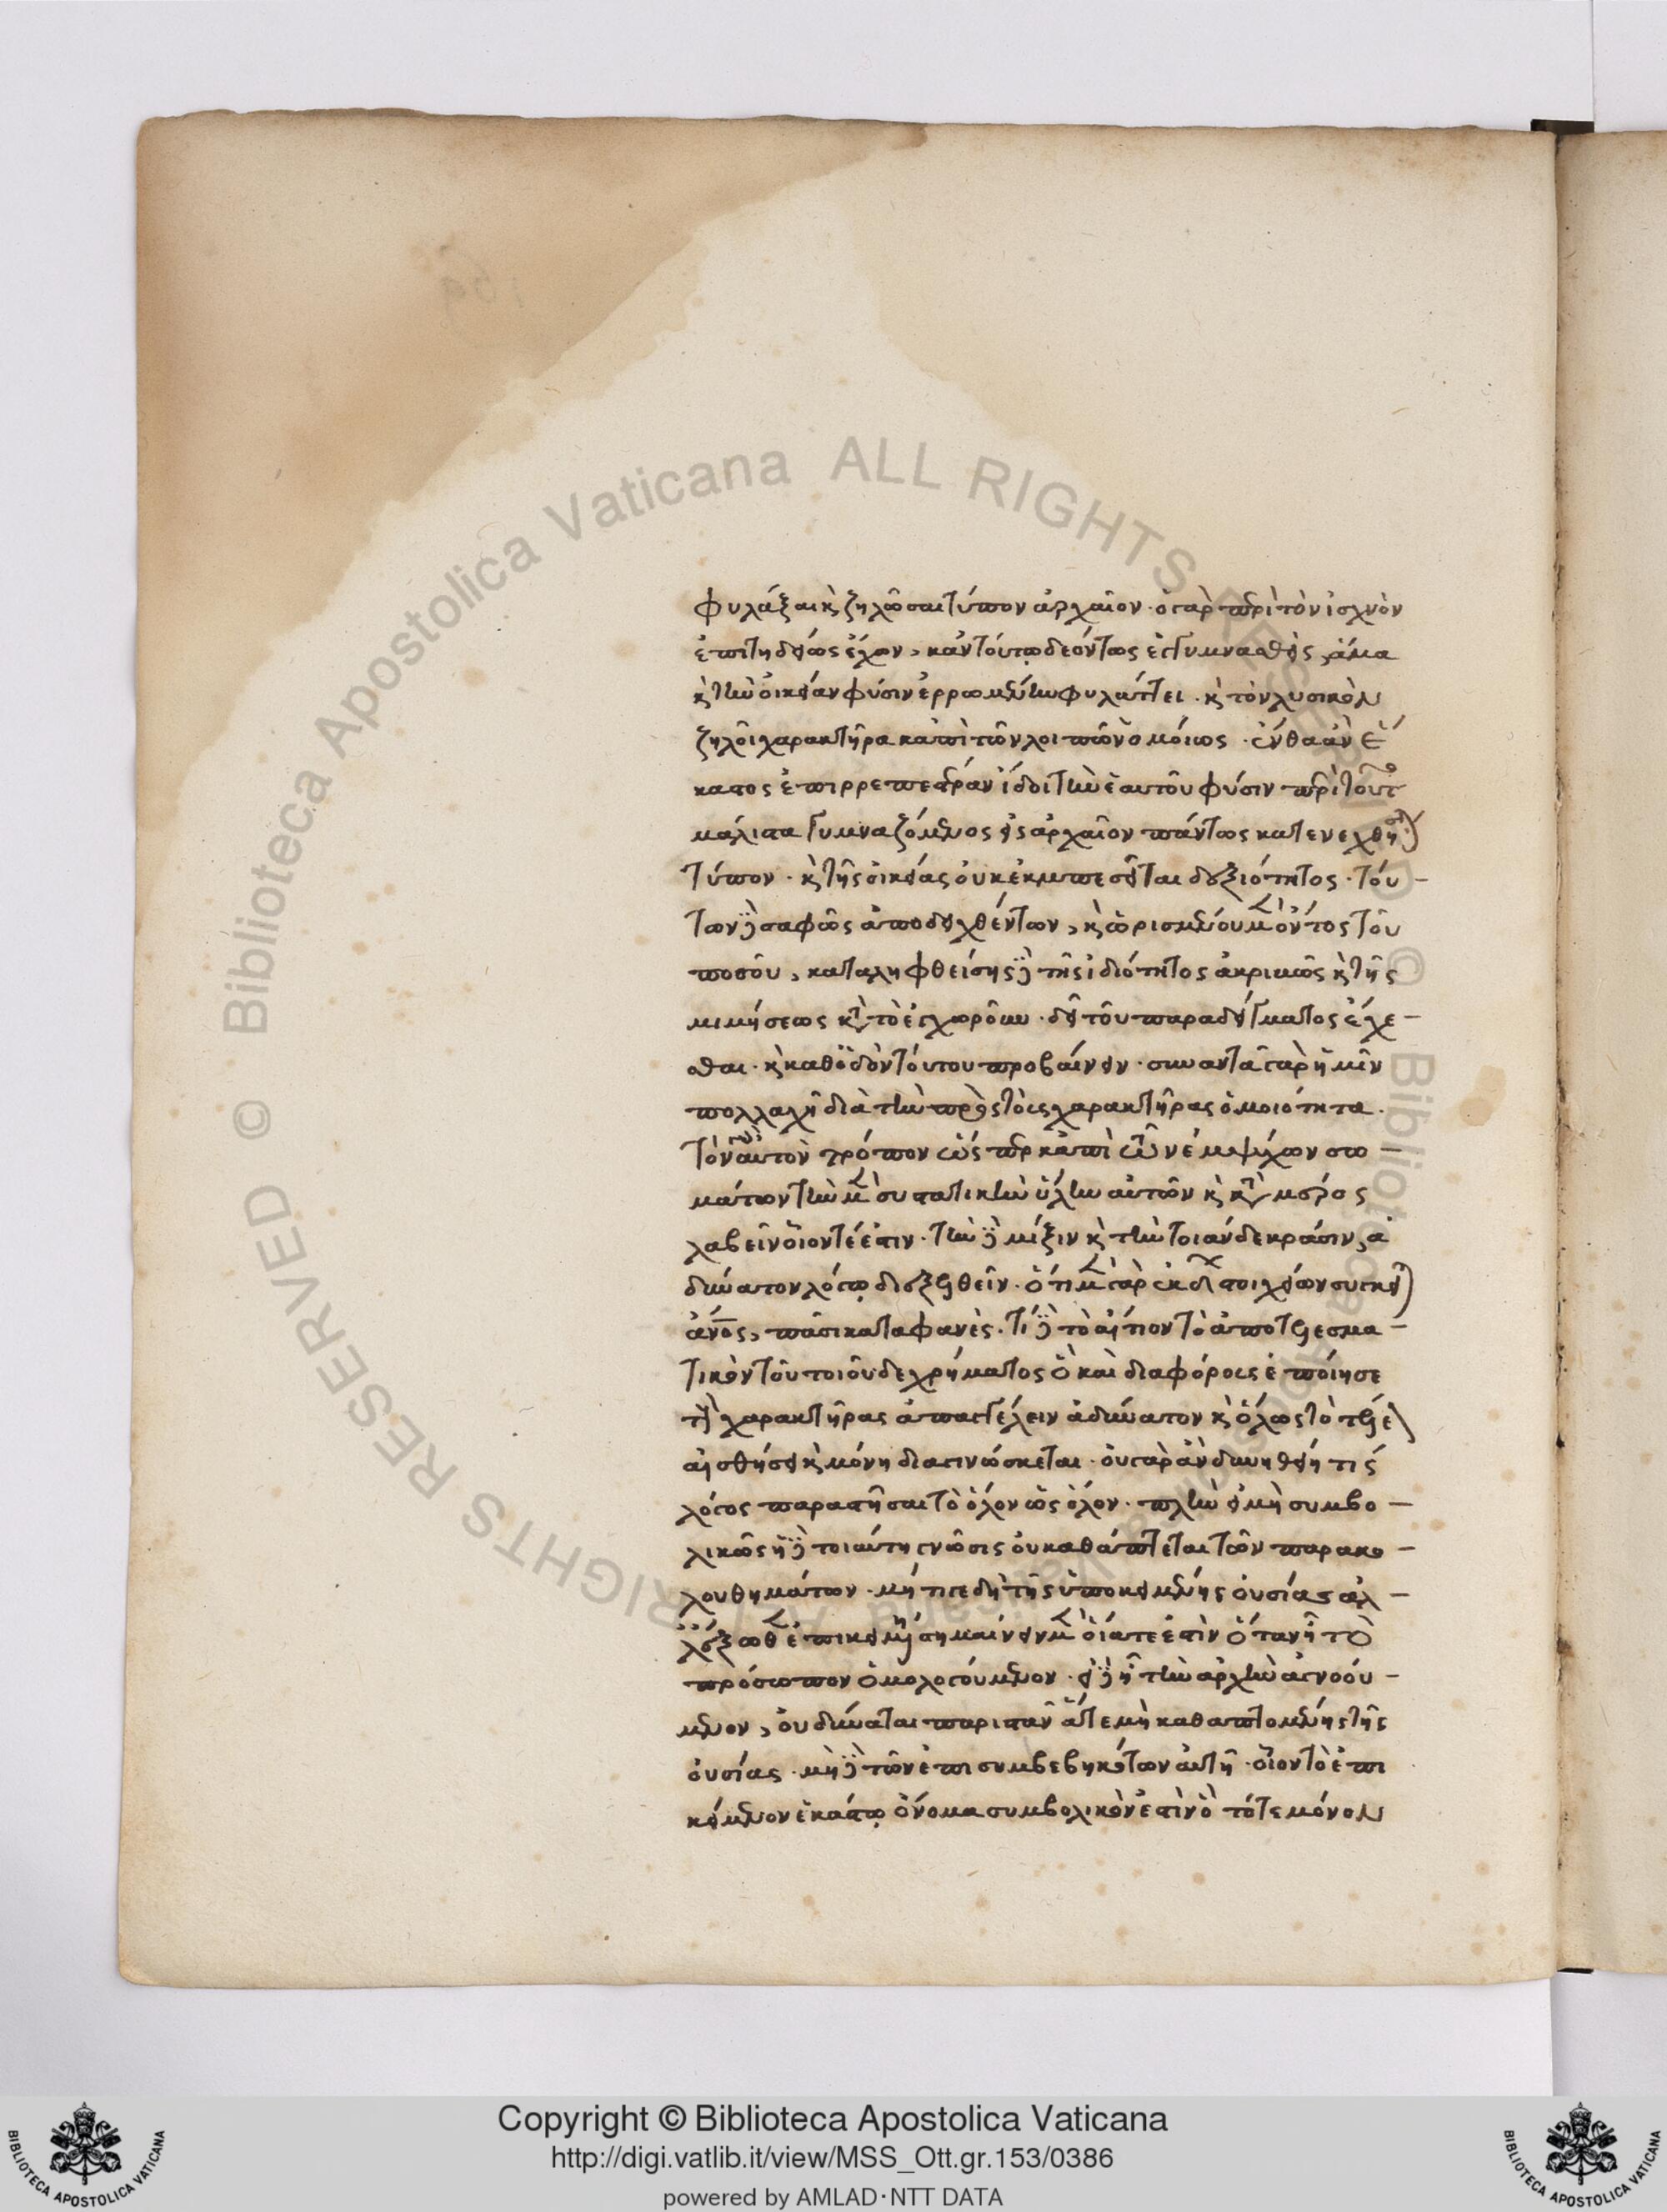 φυλάξαι κ̀ ζηλῶσαι τύπον ἀρχαῖον · ὁ γὰρ περὶ τὸν ἰσχνὸν
ἐπιτηδείως ἔχων, κἀν τούτῳ δεόντως ἐγγυμνασθεὶς, ἅμα
κ̀ τὴν οἰκείαν φύσιν ἐρρωμένην φυλάττει · κ̀ τὸν λυσικὸν
ζηλοῖ χαρακτῆρα κἀπὶ τῶν λοιπῶν ὁμοίως · ἔνθα ἂν ἕ
καστος ἐπιρρεπεστέραν ἴδοι τὴν ἑαυτοῦ φύσιν περὶ τοῦτο
μάλιστα γυμναζόμενος εἰς ἀρχαῖον πάντως κατενεχθήσεται
τύπον · κ̀ τῆς οἰκείας οὐκ ἐκπεσεῖται δεξιότητος · τού-
των δὲ σαφῶς ἀποδειχθέντων, κ̀ ὡρισμένου μὲν ὄντος τοῦ
ποσοῦ, καταληφθείσης δὲ τῆς ἰδιότητος ἀκριβῶς κ̀ τῆς
μιμήσεως κατὰ τὸ ἐγχωροῦν · δεῖ τοῦ παραδείγματος ἔχε-
σθαι · κ̀ καθ' ὁδὸν τούτου προβαίνειν · συναντᾶ γὰρ ἡμῖν
πολλαχῆ διὰ τὴν πρὸς τοὺς χαρακτῆρας ὁμοιότητα ·
τὸν αὐτὸν τρόπον ὥσπερ κἀπὶ τῶν ἐμψύχων σω-
μάτων τὴν μὲν συστατικὴν ὕλην αὐτῶν κ̀ κατὰ μέρος
λαβεῖν οἷόν τέ ἐστιν · τὴν δὲ μίξιν κ̀ τὴν τοιάνδε κράσιν, ἀ
δύνατον λόγῳ διεξελθεῖν · ὅτι μὲν γὰρ ἐκ δ στοιχείων συγκεῖται
ἄνος, πᾶσι καταφανὲς · τί δὲ τὸ αἴτιον τὸ ἀποτελεσμα-
τικὸν τοῦ τοιοῦδε χρήματος ὃ καὶ διαφόρους ἐποίησε
τοὺς χαρακτῆρας ἀπαγγέλειν ἀδύνατον κ̀ ὅλως τὸ
αἰσθήσει κ̀ μόνη διαγινώσκεται · οὐ γὰρ ἂν δυνηθείη τὶς
λόγος παραστῆσαι τὸ ὅλον ὡς ὅλον · πλὴν εἰ μὴ συμβο-
λικῶς ἡ δὲ τοιαύτη γνῶσις οὐ καθάπτεται τῶν παρακο-
λουθημάτων · μή τι γε δὴ τῆς ὑποκειμένης οὐσίας ἀλ-
σημαίνειν μὲν οἵα τε ἐστὶν ὅταν ἦ τὸ
πρόσωπον ὁμολογούμενον · εἰ δὲ ἦ τὴν ἀρχὴν ἀγνοού-
μενον, οὐ δύναται παριστᾶν ἅτε μὴ καθαπτομένης τῆς
οὐσίας · μὴ δὲ τῶν ἐπισυμβεβηκότων αὐτῆ · οἷον τὸ ἐπι
κείμενον ἑκάστῳ ὄνομα συμβολικὸν ἐστὶν ὃ τότε μόνον
Copyright © Biblioteca Apostolica Vaticana
http://digi.vatlib.it/view/MSS_Ott.gr.153/0386
powered by AMLAD·NTT DATA
BIBLIOTECA APOSTOLICA VATICANA
BIBLIOTECA APOSTOLICA VATICANA
© Biblioteca Apostolica Vaticana ALL RIGHTS RESERVED